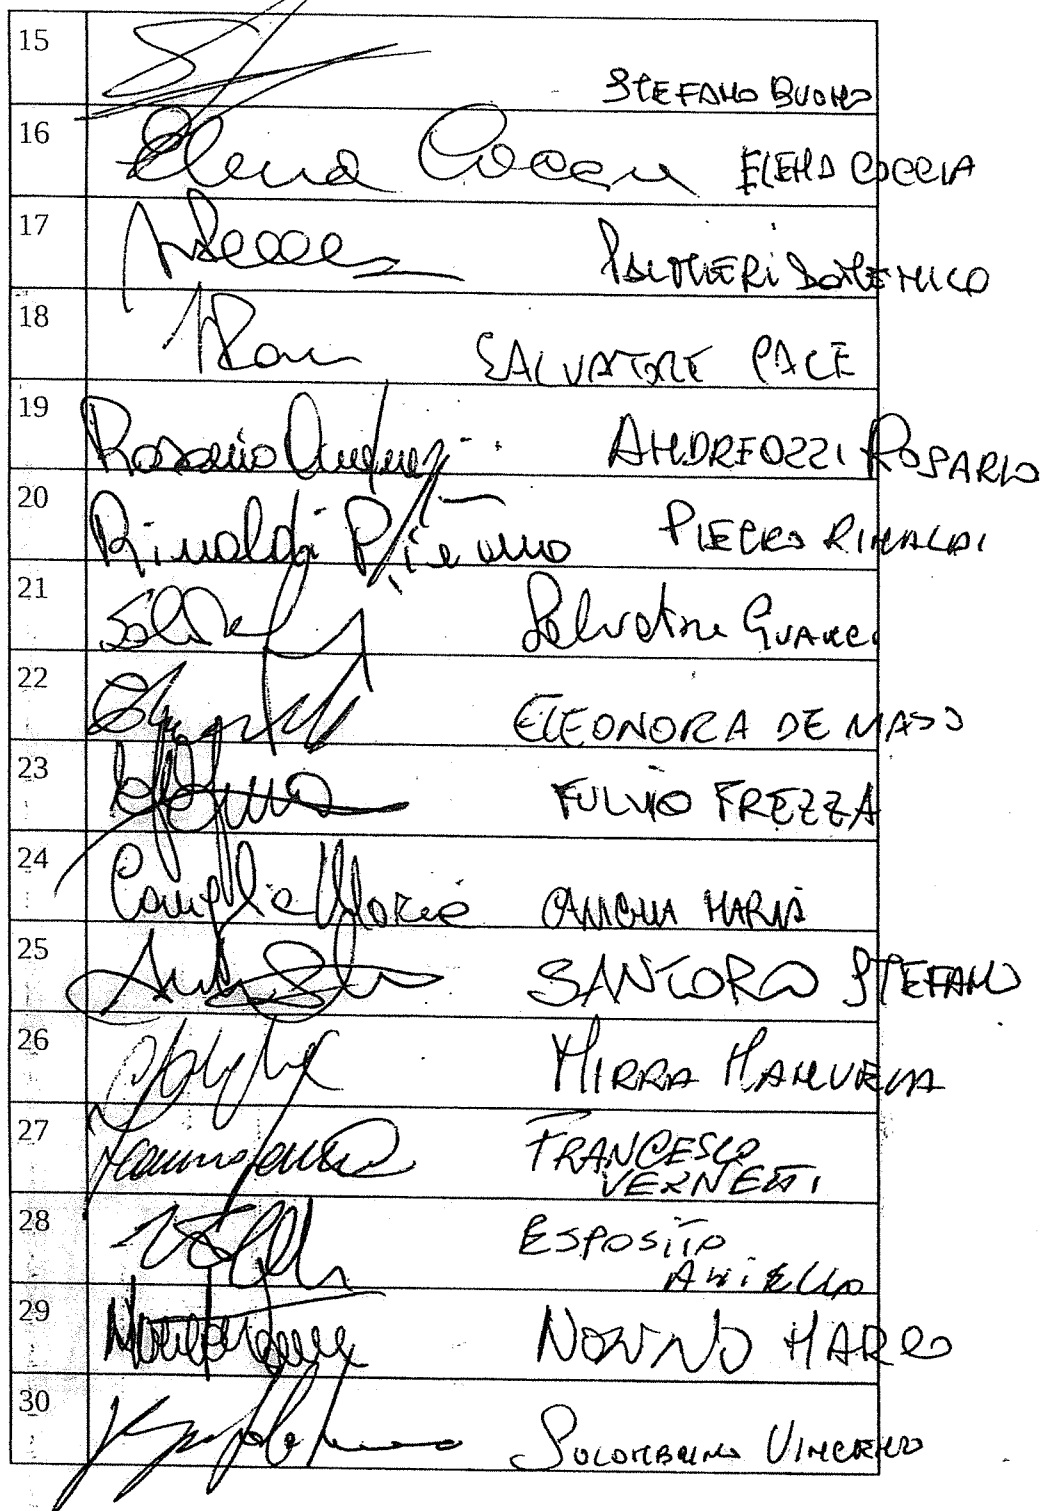 15
STEFANO BUONO
16 Elena Coccia ELENA COCCIA
17 PALMIERI DOMENICO
18 SALVATORE PACE
19 Rosario Andreozzi ANDREOZZI ROSARIO
20 Rinaldi Pietro PIETRO RINALDI
21 Salvatore GUANGI
22 ELEONORA DE MAJO
23 FULVIO FREZZA
24 Caniglia Maria CANIGLIA MARIA
25 SANTORO STEFANO
26 MIRRA MANUELA
27 FRANCESCO
VERNETTI
28 ESPOSITO
ANIELLO
29 NONNO MARCO
30 SOLOMBRINO VINCENZO